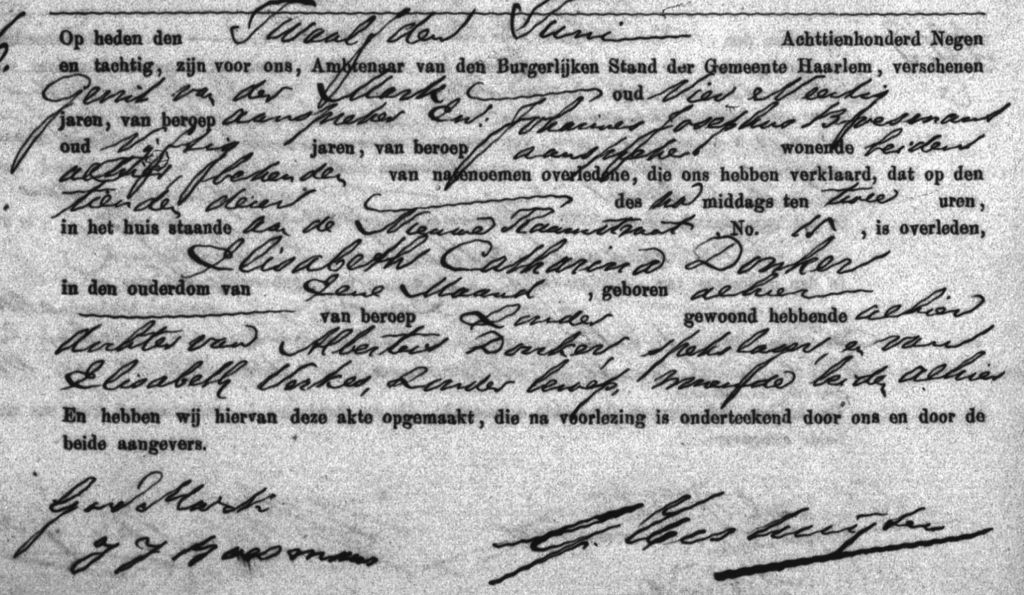 Op heden den Twaalfden Juni Achttienhonderd Negen
en tachtig, zijn voor ons, Ambtenaar van den Burgerlijken Stand der Gemeente Haarlem, verschenen
Gerrit van der Mark oud Vier en Veertig
jaren, van beroep aanspreker En: Johannes Josephus
oud Vijftig jaren, van beroep aanspreker wonende beiden
alhier, bekenden van natenoemen overledene, die ons hebben verklaard, dat op den
tienden dezer des na middags ten twee uren,
in het huis staande aan de Nieuwe Raamstraat, No. 15, is overleden,
Elisabeth Catharina Donker
in den ouderdom van Eene Maand, geboren alhier
van beroep Zonder gewoond hebbende alhier
dochter van Albertus Donker, spekslager, en van
Elisabeth Verkes, zonder beroep, wonende beiden alhier
En hebben wij hiervan deze akte opgemaakt, die na voorlezing is onderteekend door ons en door de
beide aangevers.
GvdMark
J J